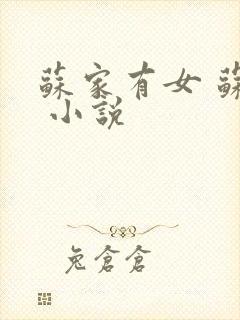 蘇家有女 蘇
小說
兔倉倉